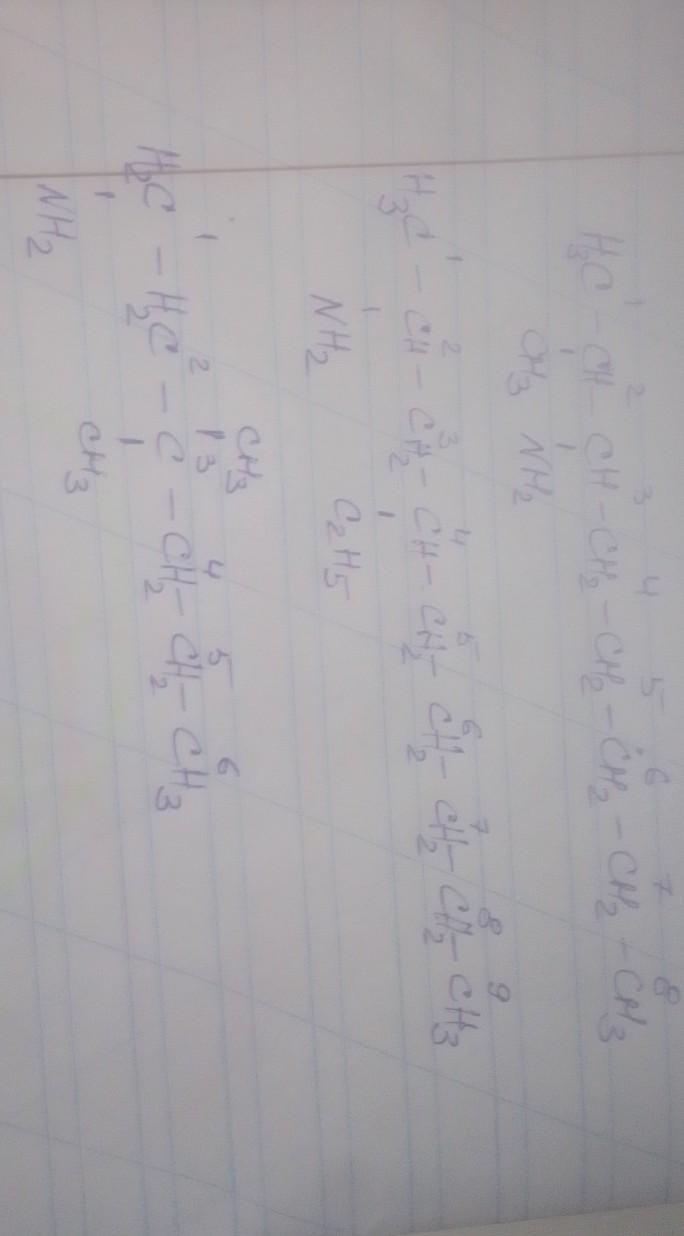 1 2 3 4 5 6 7 8
H3C - CH - CH - CH2 - CH2 - CH2 - CH2 - CH3
CH3 NH2
1 2 3 4 5 6 7 8 9
H3C - CH - CH2 - CH - CH2 - CH2 - CH2 - CH2 - CH3
NH2 C2H5
CH3
1 2 3 4 5 6
H2C - H2C - C - CH2 - CH2 - CH3
NH2 CH3